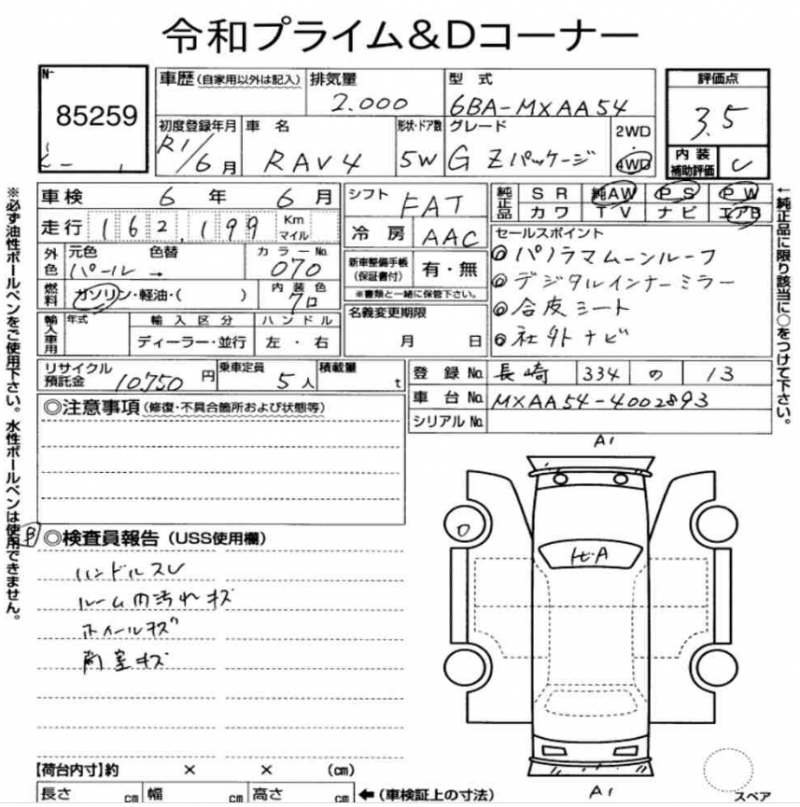 令和プライム&Dコーナー
No.
85259
車歴(自家用以外は記入) 排気量 2.000
型式 6BA-MXAA54
評価点 3.5
内装補助評価 C
初度登録年月 R1/6月
車名 RAV4
形状・ドア数 5W
グレード G Zパッケージ
2WD
4WD
車検 6年 6月
走行 162,199 Km マイル
外色 元色 パール 色替 → カラーNo. 070
燃料 ガソリン・軽油・( ) 内装色 クロ
輸入車用 年式 輸入区分 ディーラー・並行 ハンドル 左・右
シフト FAT
冷房 AAC
新車整備手帳(保証書付) 有・無
※書類と一緒に保管下さい。
名義変更期限 月 日
純正品 SR 純AW PS PW
カワ TV ナビ エアB
セールスポイント
◎パノラマムーンルーフ
◎デジタルインナーミラー
◎合皮シート
◎社外ナビ
リサイクル預託金 10,750円
乗車定員 5人
積載量 t
登録No. 長崎 334 の 13
車台No. MXAA54-4002893
シリアルNo.
◎注意事項(修復・不具合箇所および状態等)
◎検査員報告(USS使用欄)
ハンドルスレ
ルーム内汚れキズ
ホイールキズ
荷室キズ
A1
ヒビA
A1
スペア
【荷台内寸】約 × × (cm)
長さ cm 幅 cm 高さ cm ←(車検証上の寸法)
※必ず油性ボールペンをご使用下さい。水性ボールペンは使用できません。
←純正品に限り該当に○をつけて下さい。